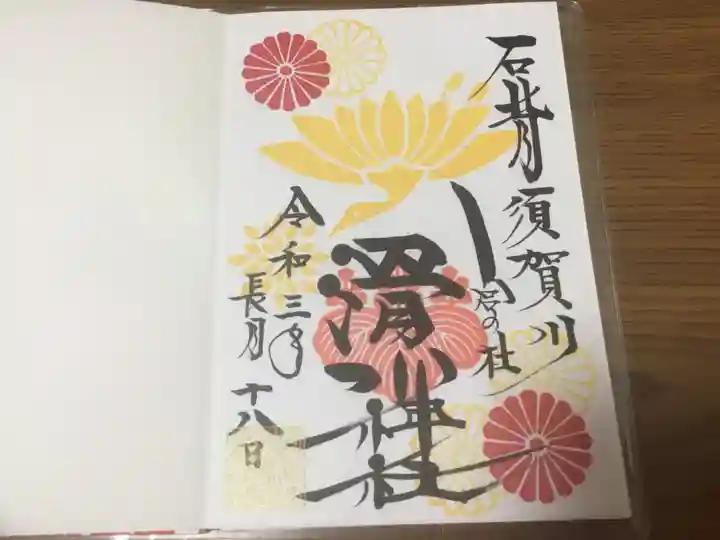 石背須賀川
宮の杜
滑川神社
令和三年
長月十八日